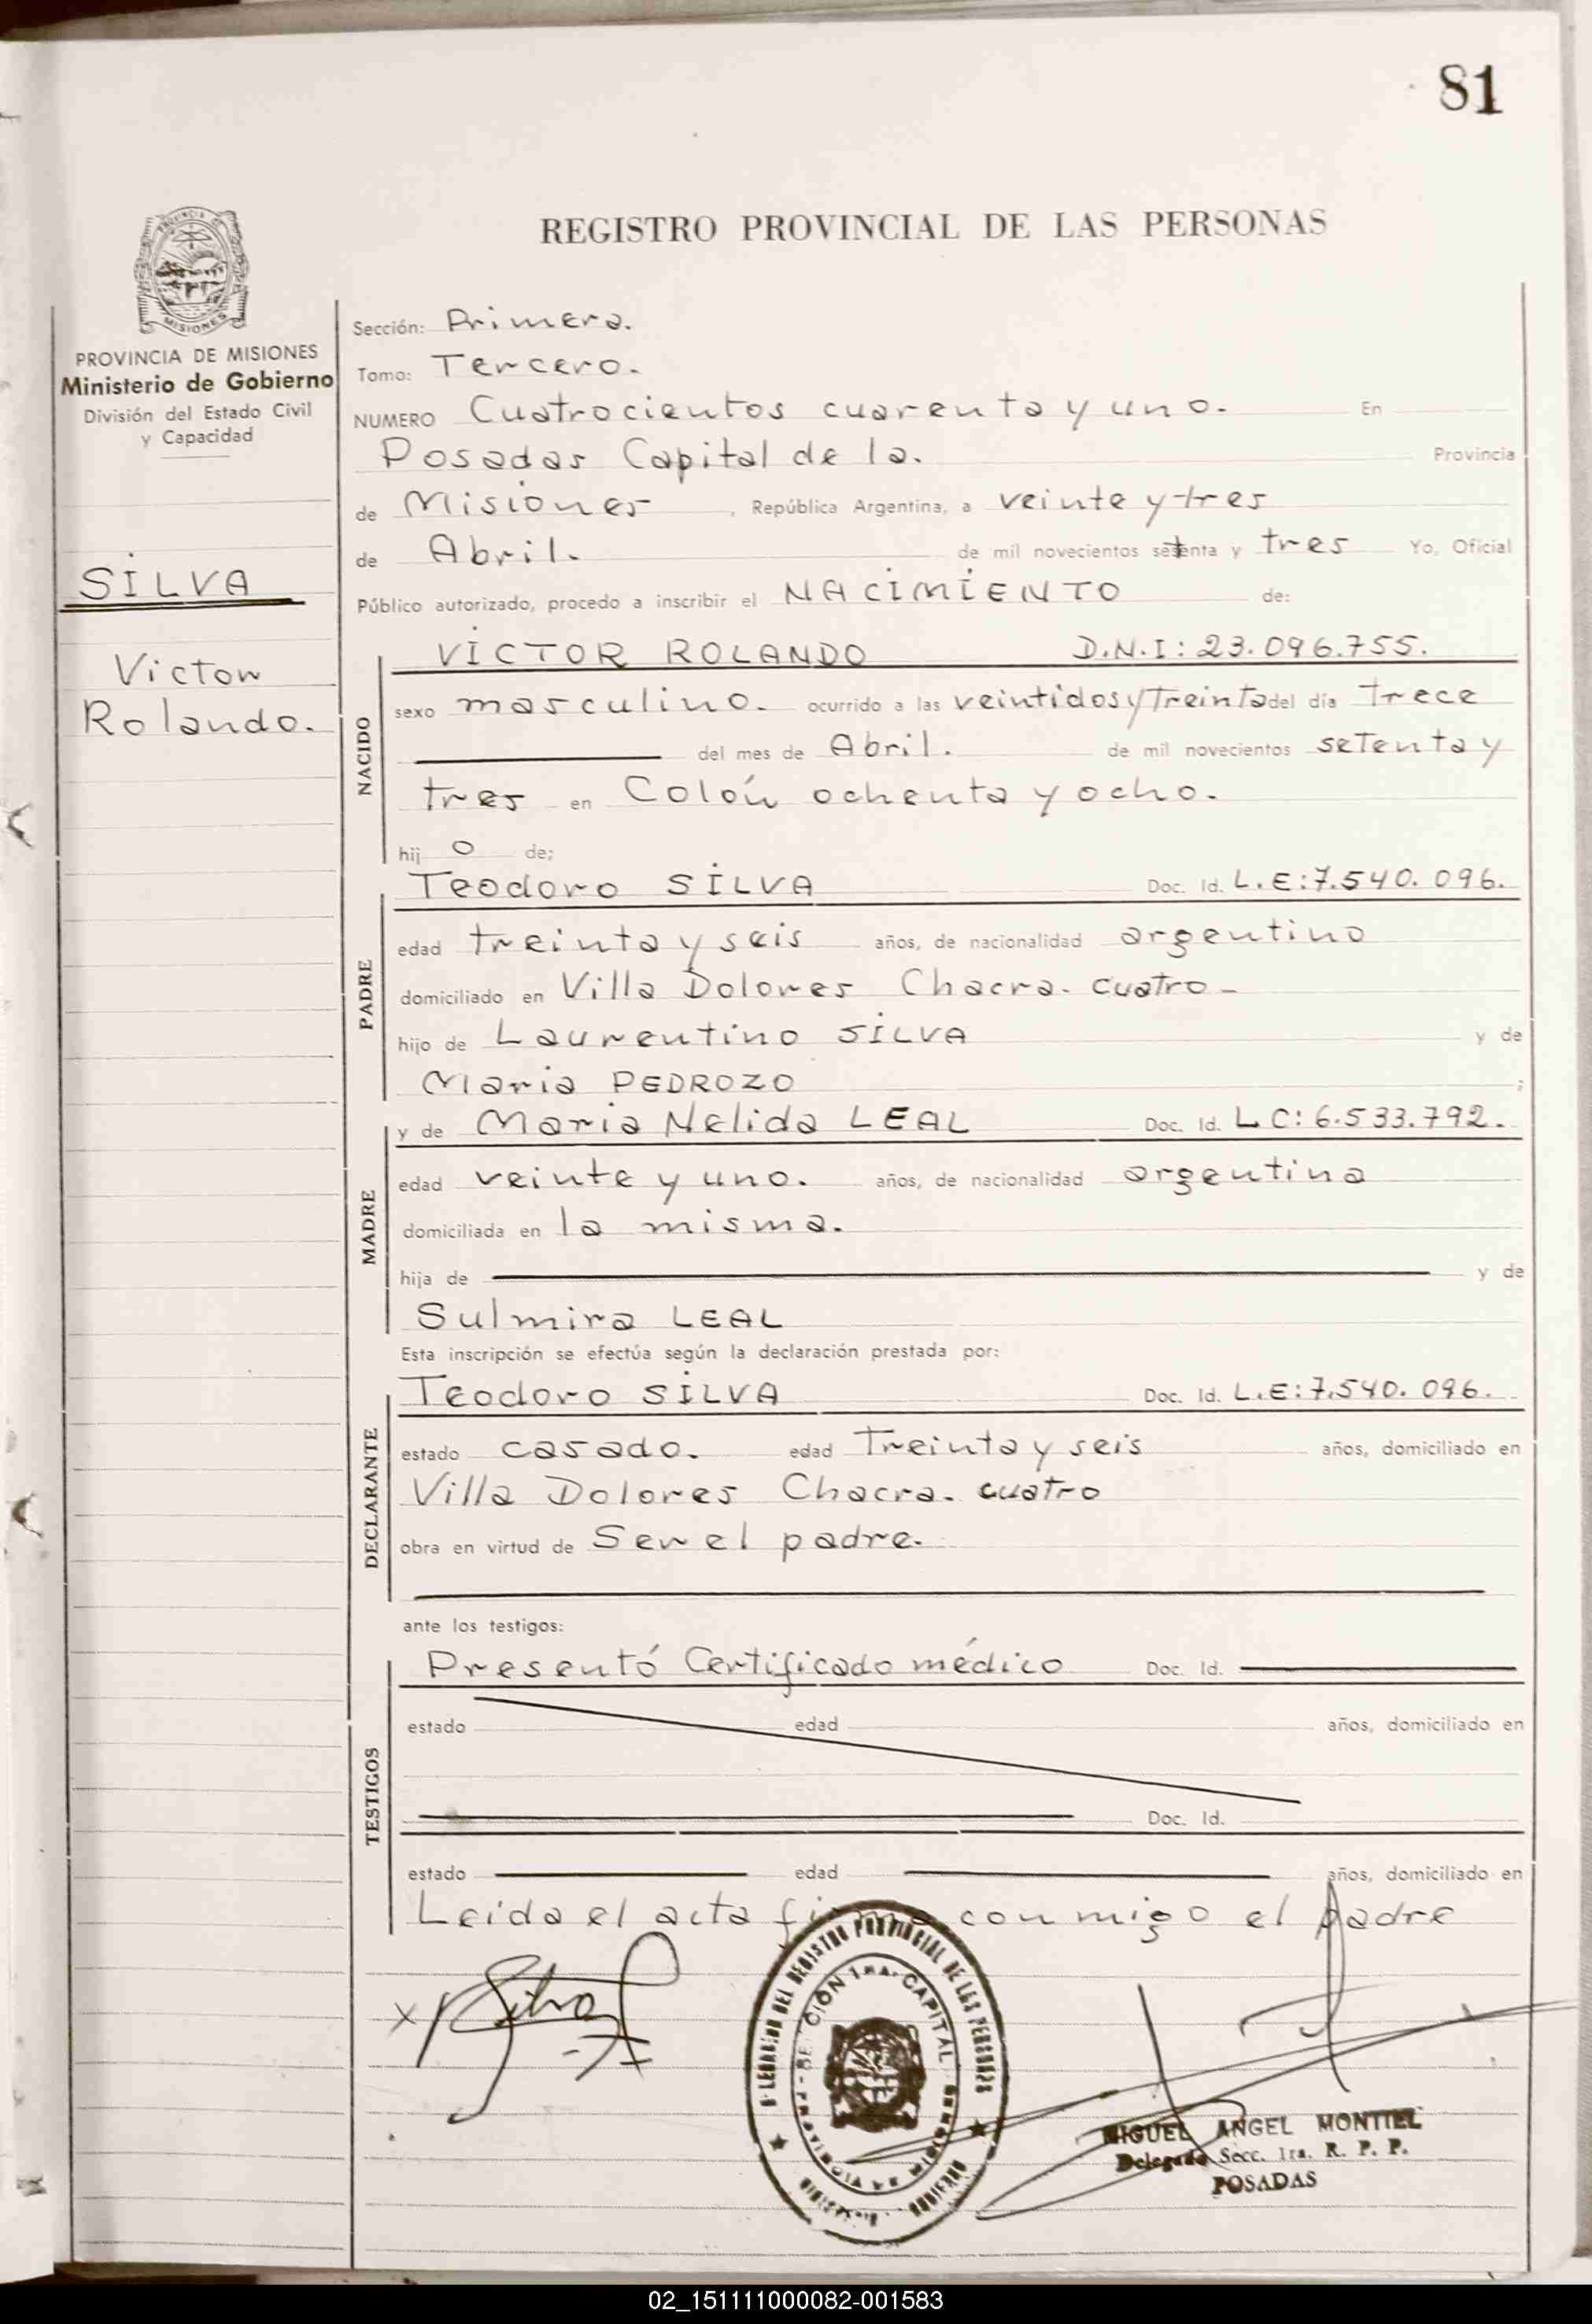 81
REGISTRO PROVINCIAL DE LAS PERSONAS
PROVINCIA DE MISIONES
Ministerio de Gobierno
División del Estado Civil
y Capacidad
SILVA
Victor
Rolando.
Sección: Primera.
Tomo: Tercero.
NUMERO Cuatrocientos cuarenta y uno. En
Posadas Capital de la. Provincia
de Misiones, República Argentina, a veinte y tres
de Abril. de mil novecientos setenta y tres Yo, Oficial
Público autorizado, procedo a inscribir el NACIMIENTO de:
NACIDO
VICTOR ROLANDO D.N.I: 23.096.755.
sexo masculino. ocurrido a las veintidos y Treinta del día Trece
del mes de Abril. de mil novecientos setenta y
tres en Colón ochenta y ocho.
hij o de;
PADRE
Teodoro SILVA Doc. Id. L.E: 7.540.096.
edad treinta y seis años, de nacionalidad argentino
domiciliado en Villa Dolores Chacra. cuatro-
hijo de Laurentino SILVA y de
Maria PEDROZO ;
MADRE
y de Maria Nelida LEAL Doc. Id. L C: 6.533.792.
edad veinte y uno. años, de nacionalidad argentina
domiciliada en la misma.
hija de y de
Sulmira LEAL
Esta inscripción se efectúa según la declaración prestada por:
DECLARANTE
Teodoro SILVA Doc. Id. L.E: 7.540.096.
estado casado. edad Treinta y seis años, domiciliado en
Villa Dolores Chacra. cuatro
obra en virtud de Ser el padre.
ante los testigos:
TESTIGOS
Presentó Certificado médico Doc. Id.
estado edad años, domiciliado en
Doc. Id.
estado edad años, domiciliado en
Leida el acta firma conmigo el padre
x Silva
MIGUEL ANGEL MONTIEL
Delegado Secc. 1ra. R. P. P.
POSADAS
02_151111000082-001583